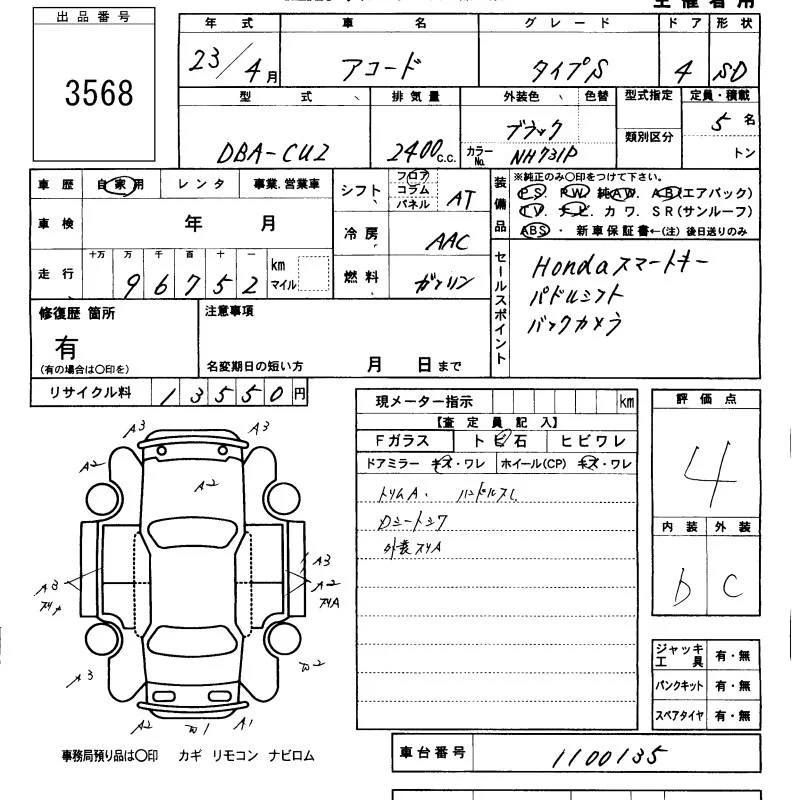 主催者用
出品番号
3568
年式 車名 グレード ドア 形状
23/4月 アコード タイプS 4 SD
型式 排気量 外装色 色替 型式指定 定員・積載
DBA-CU2 2400c.c. ブラック 類別区分 5名
カラーNo. NH731P トン
車歴 自家用 レンタ 事業.営業車
シフト フロア コラム パネル AT
車検 年 月
冷房 AAC
走行 十万 万 千 百 十 一 km マイル
96752
燃料 ガソリン
装備品
※純正のみ○印をつけて下さい。
PS. PW. 純AW. AB(エアバック)
TV. ナビ. カワ. SR(サンルーフ)
ABS ・ 新車保証書←(注)後日送りのみ
セールスポイント
Hondaスマートキー
パドルシフト
バックカメラ
修復歴 箇所
有
(有の場合は○印を)
注意事項
名変期日の短い方 月 日まで
リサイクル料 13550円
現メーター指示 km
【査定員記入】
Fガラス トビ石 ヒビワレ
ドアミラー キズ・ワレ ホイール(CP) キズ・ワレ
トリムA. ハンドルスレ
Dシートシワ
外装スリA
評価点
4
内装 外装
b C
A3 A3
A2
A2
A3
A3 A2
スリA
A3 A2
A2 A1
ジャッキ工具 有・無
パンクキット 有・無
スペアタイヤ 有・無
事務局預り品は○印 カギ リモコン ナビロム
車台番号 1100135